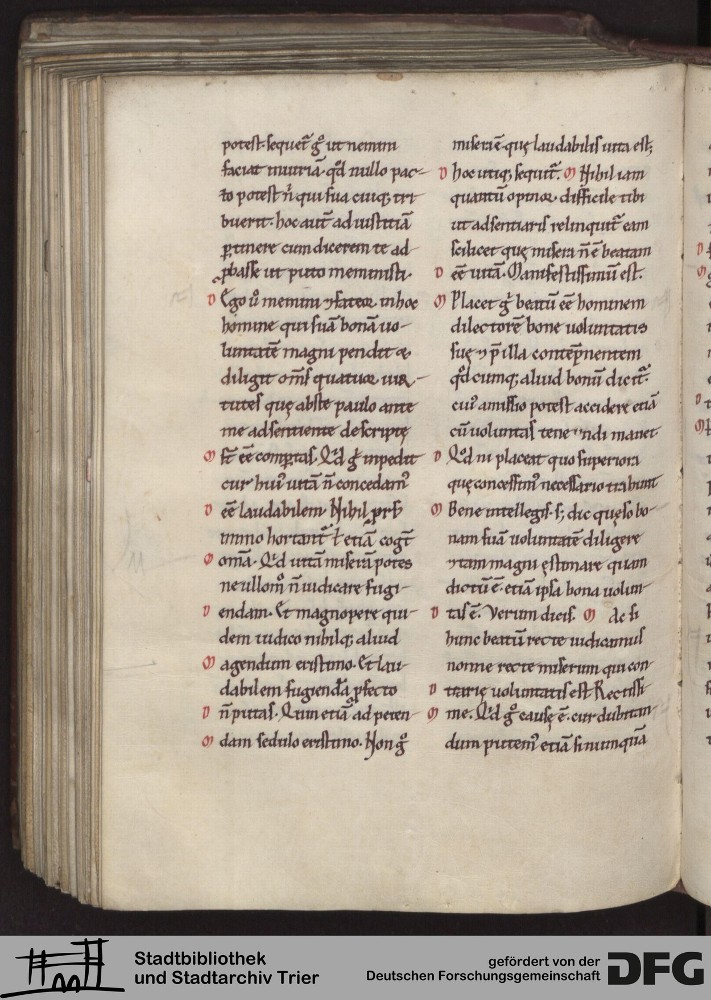 potest. sequet̃ g̊ ut nemini
faciat iniuriã. qd̃ nullo pac-
to potest n̄ qui sua cuiq; tri
buerit. hoc aut̃ ad iustitiã
ꝑtinere cum dicerem te ad
ꝓbasse ut puto meministi.
D Ego ů memini ⁊ fateor in hoc
homine qui suã bonã uo-
luntatẽ magni pendit &
diligit om̃s quatuor uir-
tutes quę abste paulo ante
me adsentiente descriptę
M st̃ ẽe comptas. Qd̃ g̊ inpedit
cur hui᷒ uitã n̄ concedam᷒
D ẽe laudabilem. Nihil prs᷒
immo hortant̃ ł etiã cogt̃
M om̃a. Qd̃ uitã miserã potes
ne ullom̊ n̄ iudicare fugi-
D endam. Et magnopere qui-
dem iudico nihilq; aliud
M agendum existimo. Et lau-
dabilem fugiendã ꝓfecto
D n̄ putas. Quin etiã ad peten-
M dam sedulo existimo. Non g̊
miserẽ. quę laudabilis uita est;
D hoc utiq; sequit̃. M Nihil iam
quantũ opinor. difficile tibi
ut adsentiaris relinquit̃ eam
scilicet quę misera n̄ ẽ beatam
D ẽe uitã. Manifestissimũ est.
M Placet g̊ beatũ ẽe hominem
dilectorẽ bone uoluntatis
suę ⁊ p̃ illa contẽpnentem
qd̃cumq; aliud bonũ dicit̃.
cui᷒ amissio potest accidere etiã
cũ uoluntas tenendi manet
D Qd̃ ni placeat quo superiora
quę concessim᷒ necessario trahunt
M Bene intellegis. s; dic quęso bo-
nam suã uoluntatẽ diligere
⁊ tam magni ęstimare quam
dictũ ẽ. etiã ipsa bona uolun-
D tas ẽ. Verum dicis. M Ac si
hunc beatũ recte iudicamus
nonne recte miserum qui con-
D trarię uoluntatis est Rectissi-
M me. Qd̃ g̊ causę ẽ. cur dubitan-
dum putem᷒ etiã si nunquã
Stadtbibliothek
und Stadtarchiv Trier
gefördert von der
Deutschen Forschungsgemeinschaft
DFG